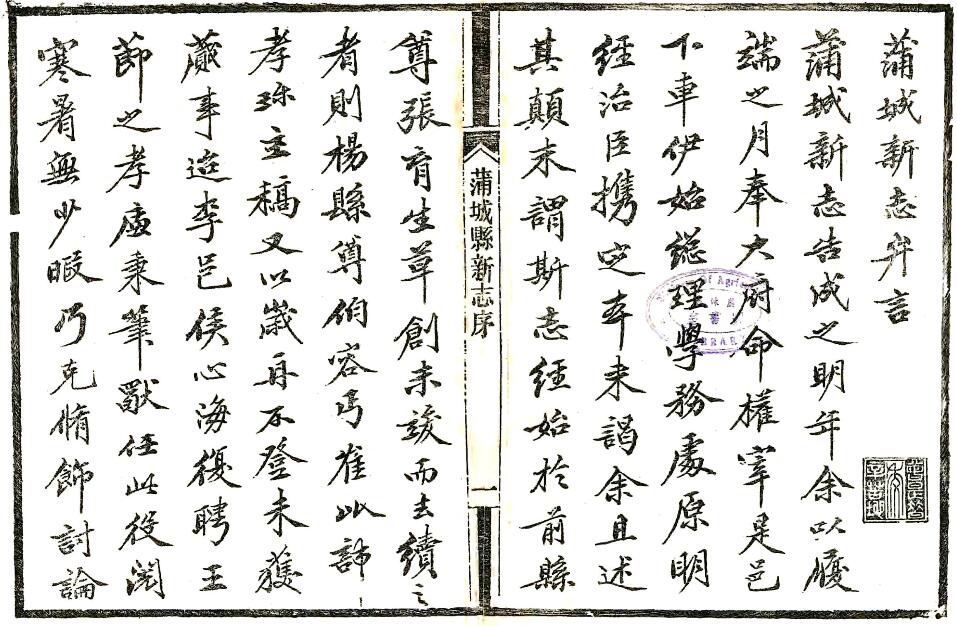 蒲城新志弁言
蒲城新志告成之明年余以履
端之月奉大府命權宰是邑
下車伊始總理學務處原明
經治臣攜志本来謁余且述
其顛末謂斯志經始於前縣
蒲城縣新志序
一
尊張育生草創未竣而去續之
者則楊縣尊伯容高雀此
孝珎主稿又以歲再不登未獲
蕆事迨李邑侯心海復聘王
莭之孝廉秉筆猷任此役閱
寒暑無少暇乃克脩飾討論